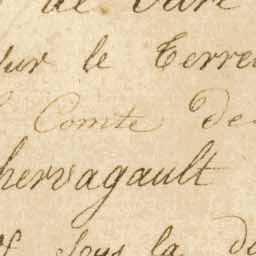 de
sur le Terre
Comte de
hervagault
sous la de